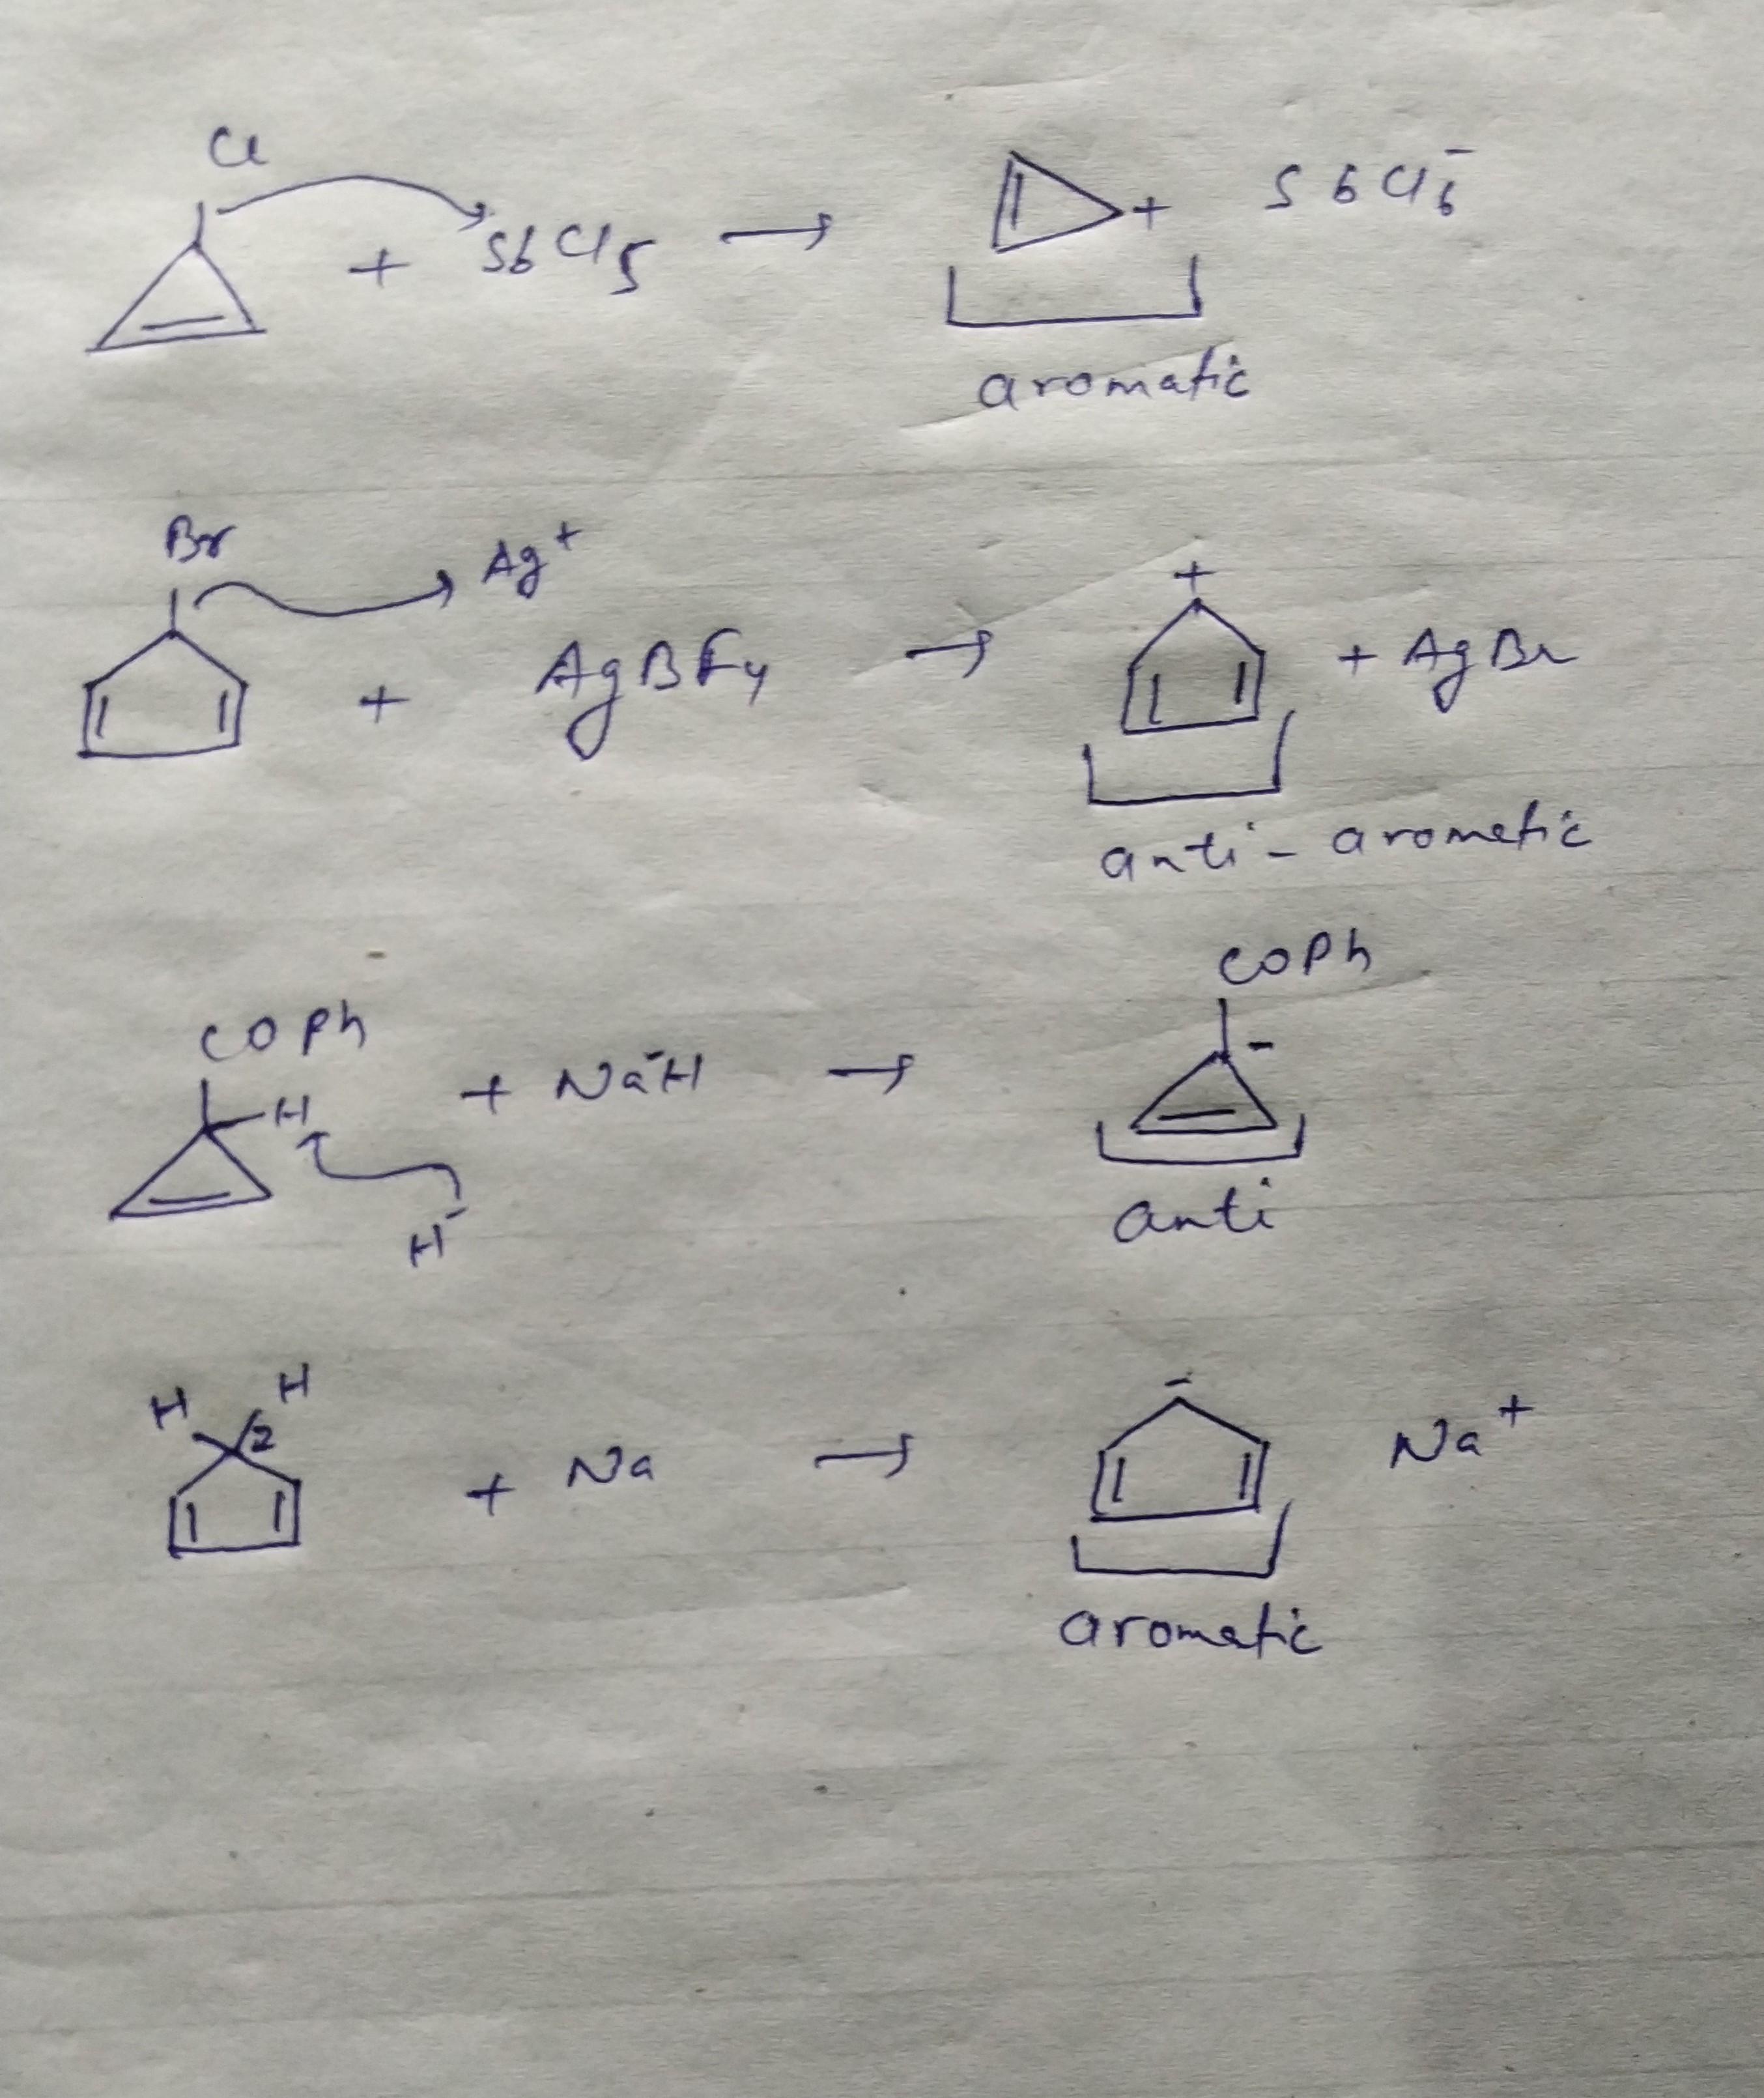 Cl
+ SbCl5 → + SbCl6-
aromatic
Br Ag+
+ AgBF4 → + + AgBr
anti-aromatic
COPh
COPh
H + NaH- → -
H-
anti
H H
2 + Na → - Na+
aromatic